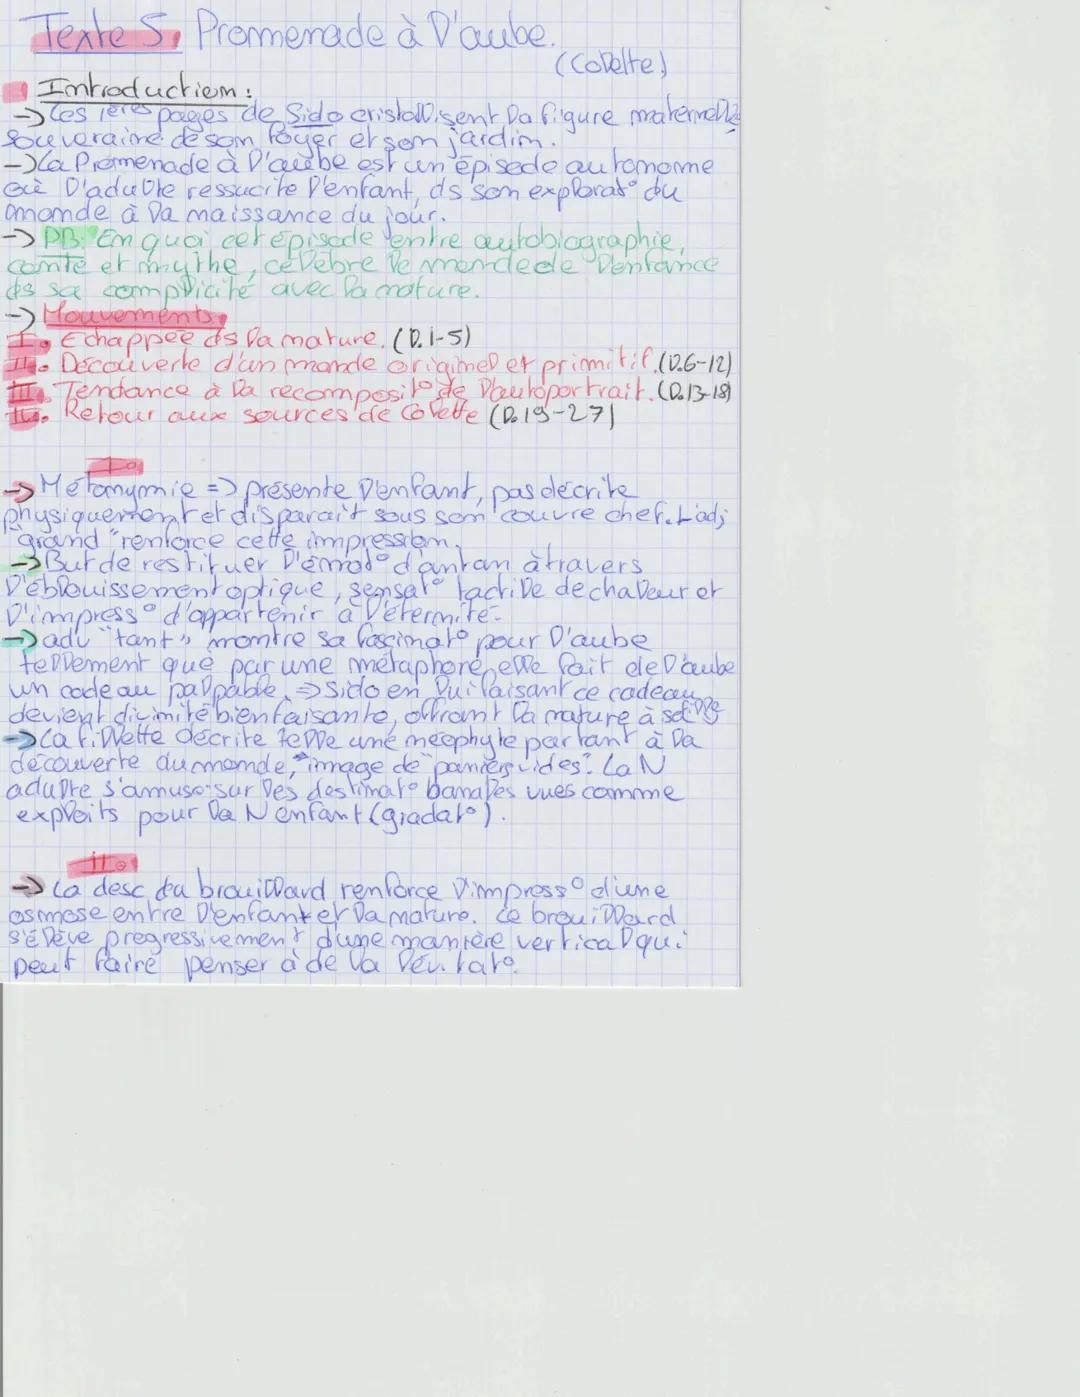 Texte 5. Promenade à l'aube.
(Colette)
Introduction :
→ Les 1ères pages de Sido cristallisent la figure maternelle
souveraine de son foyer et son jardin.
→ La Promenade à l'aube est un épisode autonome
où l'adulte ressucite l'enfant, ds son explorat° du
monde à la naissance du jour.
→ PB: En quoi cet épisode entre autobiographie,
conte et mythe, célèbre le monde de l'enfance
ds sa complicité avec la nature.
→ Mouvements
I. Echappée ds la nature. (l.1-5)
II. Découverte d'un monde originel et primitif. (l.6-12)
III. Tendance à la recomposit° de l'autoportrait. (l.13-18)
Retour aux sources de Colette (l.19-27)
I.
→ Métonymie => présente l'enfant, pas décrite
physiquement et disparait sous son couvre chef. L'adj
"grand" renforce cette impression.
→ But de restituer l'émot° d'antan à travers
l'éblouissement optique, sensat° tactile de chaleur et
l'impress° d'appartenir à l'éternité.
→ adv "tant" montre sa fascinat° pour l'aube
tellement que par une métaphore, elle fait de l'aube
un cadeau palpable. => Sido en lui faisant ce cadeau
devient divinité bienfaisante, offrant la nature à sa fille
→ La fillette décrite telle une néophyte partant à la
découverte du monde, "image de "paniers vides". La N
adulte s'amuse sur les destinat° banales vues comme
exploits pour la N enfant (gradat°).
II.
→ La desc du brouillard renforce l'impress° d'une
osmose entre l'enfant et la nature. Le brouillard
s'élève progressivement d'une manière vertical qui
peut faire penser à de la lévitat°.